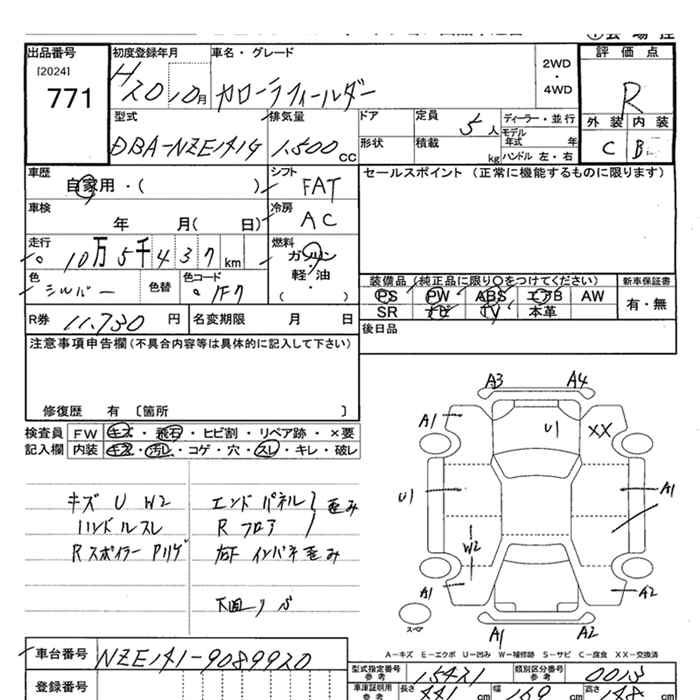 出品番号 初度登録年月 車名・グレード 評価点
[2024] 2WD・4WD
771 H20 10月 カローラフィールダー R
外装 内装
C B
型式 排気量 ドア 定員 ディーラー・並行
DBA-NZE141G 1,500cc 5人 モデル年式 年
形状 積載 kg ハンドル 左・右
車歴 シフト セールスポイント（正常に機能するものに限ります）
自家用・( ) FAT
車検 冷房
年 月( 日) AC
走行 燃料
10万5千437km ガソリン
軽・油
( )
色 色替 色コード 装備品（純正品に限り○をつけてください） 新車保証書
シルバー 1F7 PS PW ABS エアB AW 有・無
SR ナビ TV 本革
R券 11,730円 名変期限 月 日 後日品
注意事項申告欄（不具合内容等は具体的に記入して下さい）
修復歴 有 〔箇所 〕
検査員 FW キズ・飛石・ヒビ割・リペア跡・×要
記入欄 内装 キズ・汚レ・コゲ・穴・スレ・キレ・破レ
キズ U W2 エンドパネル 歪み
ハンドルスレ Rフロア
Rスポイラー Pリゲ 右下インパネ歪み
下回りサビ
A3 A4
A1 U1 XX
U1 A1
W2
A2
A1 A1 A2
スペア
A=キズ E=エクボ U=凹み W=補修跡 S=サビ C=腐食 XX=交換済
車台番号 NZE141-9089920
型式指定番号 参考 15421 類別区分番号 参考 0013
登録番号 車庫証明用 参考 長さ 441 cm 幅 169 cm 高さ 148 cm